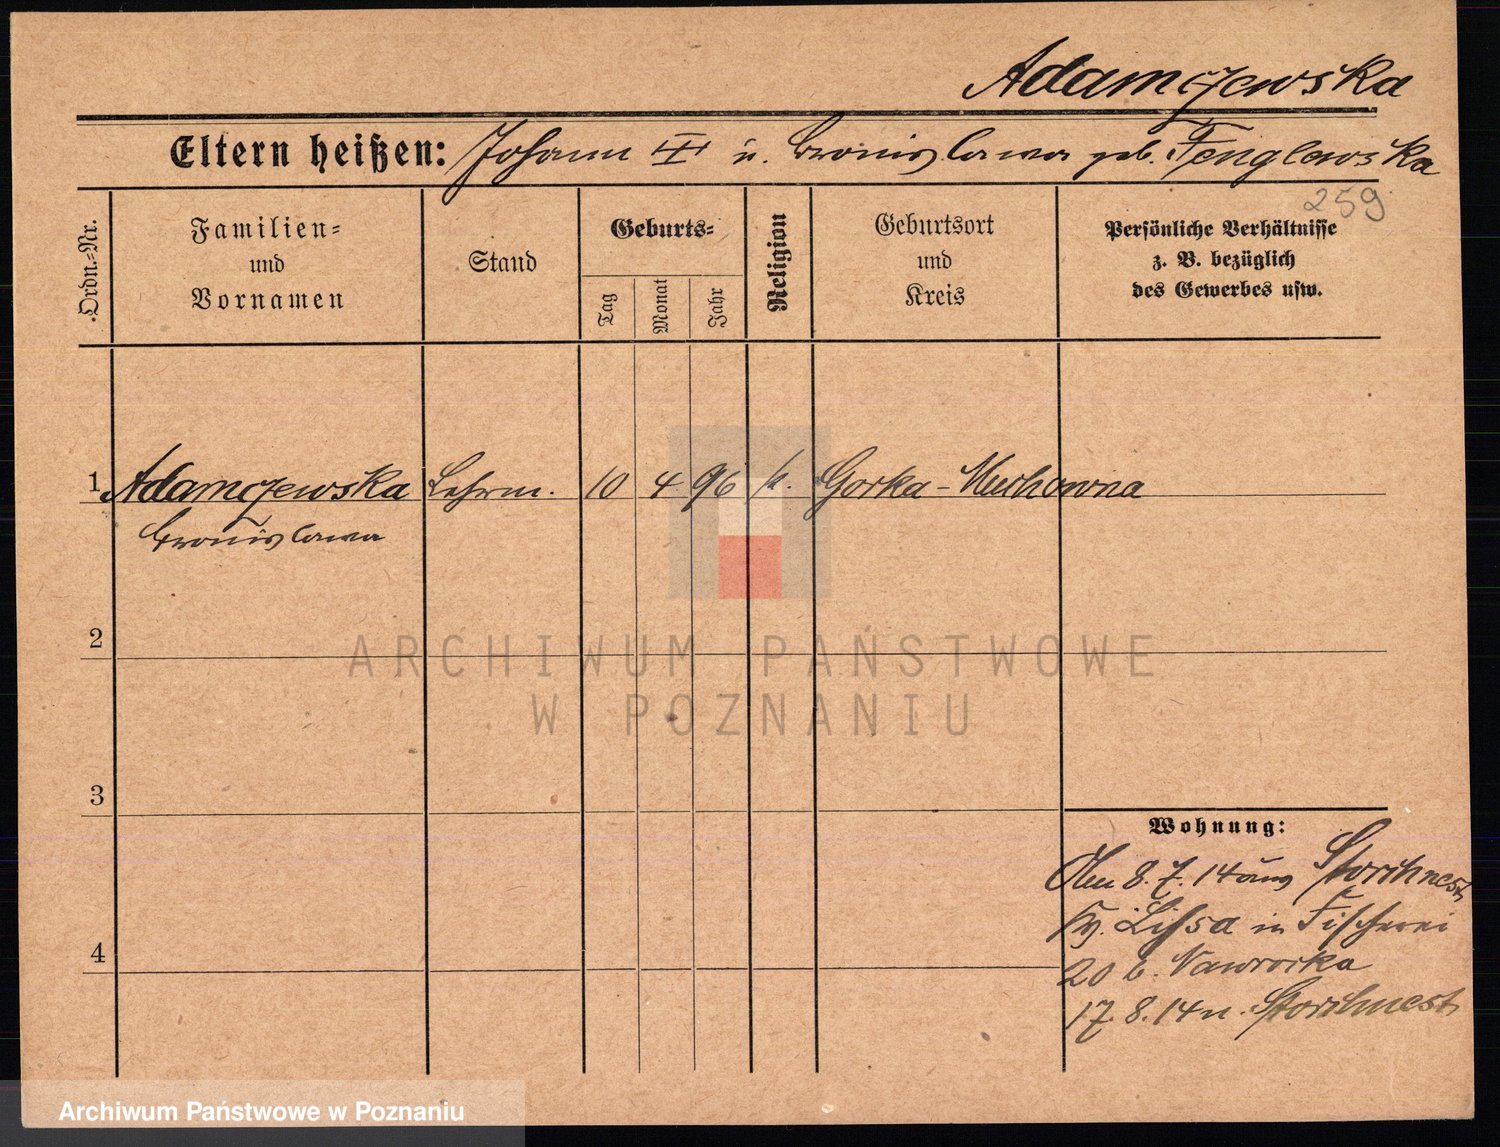 Adamczewska
Eltern heißen: Johann u. Bronislawa geb. Fenglewska
259
Ordn.-Nr.
Familien-
und
Vornamen
Stand
Geburts-
Tag
Monat
Jahr
Religion
Geburtsort
und
Kreis
Persönliche Verhältnisse
z. B. bezüglich
des Gewerbes usw.
1 Adamczewska Lehrm. 10 4 96 k. Gorka-Muchowna
Bronislawa
2
3
4
Wohnung:
8.7.14 aus Storchnest
Lissa in Fischerei
20 b. Nawrocka
17.8.14 n. Storchnest
ARCHIWUM PAŃSTWOWE
W POZNANIU
Archiwum Państwowe w Poznaniu